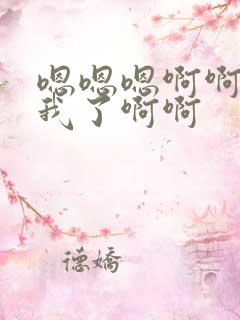 嗯嗯嗯啊啊
我了啊啊
德娇